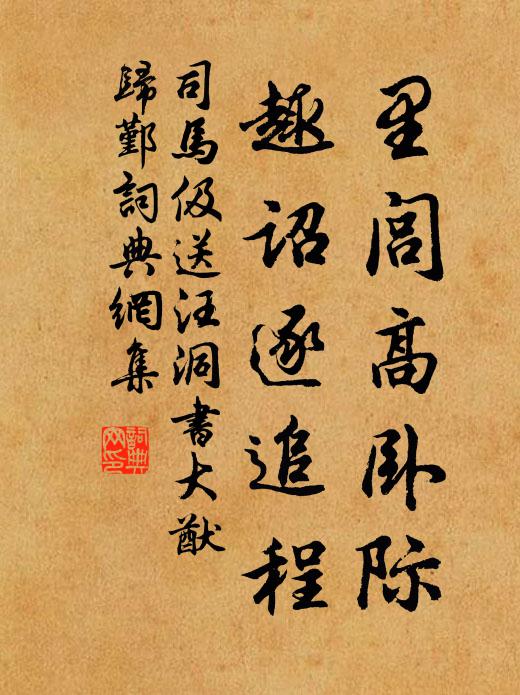 里閭高卧际
趣诏逐追程
司馬伋送汪洞書大猷
歸鄞詞典網集
詞典
网印